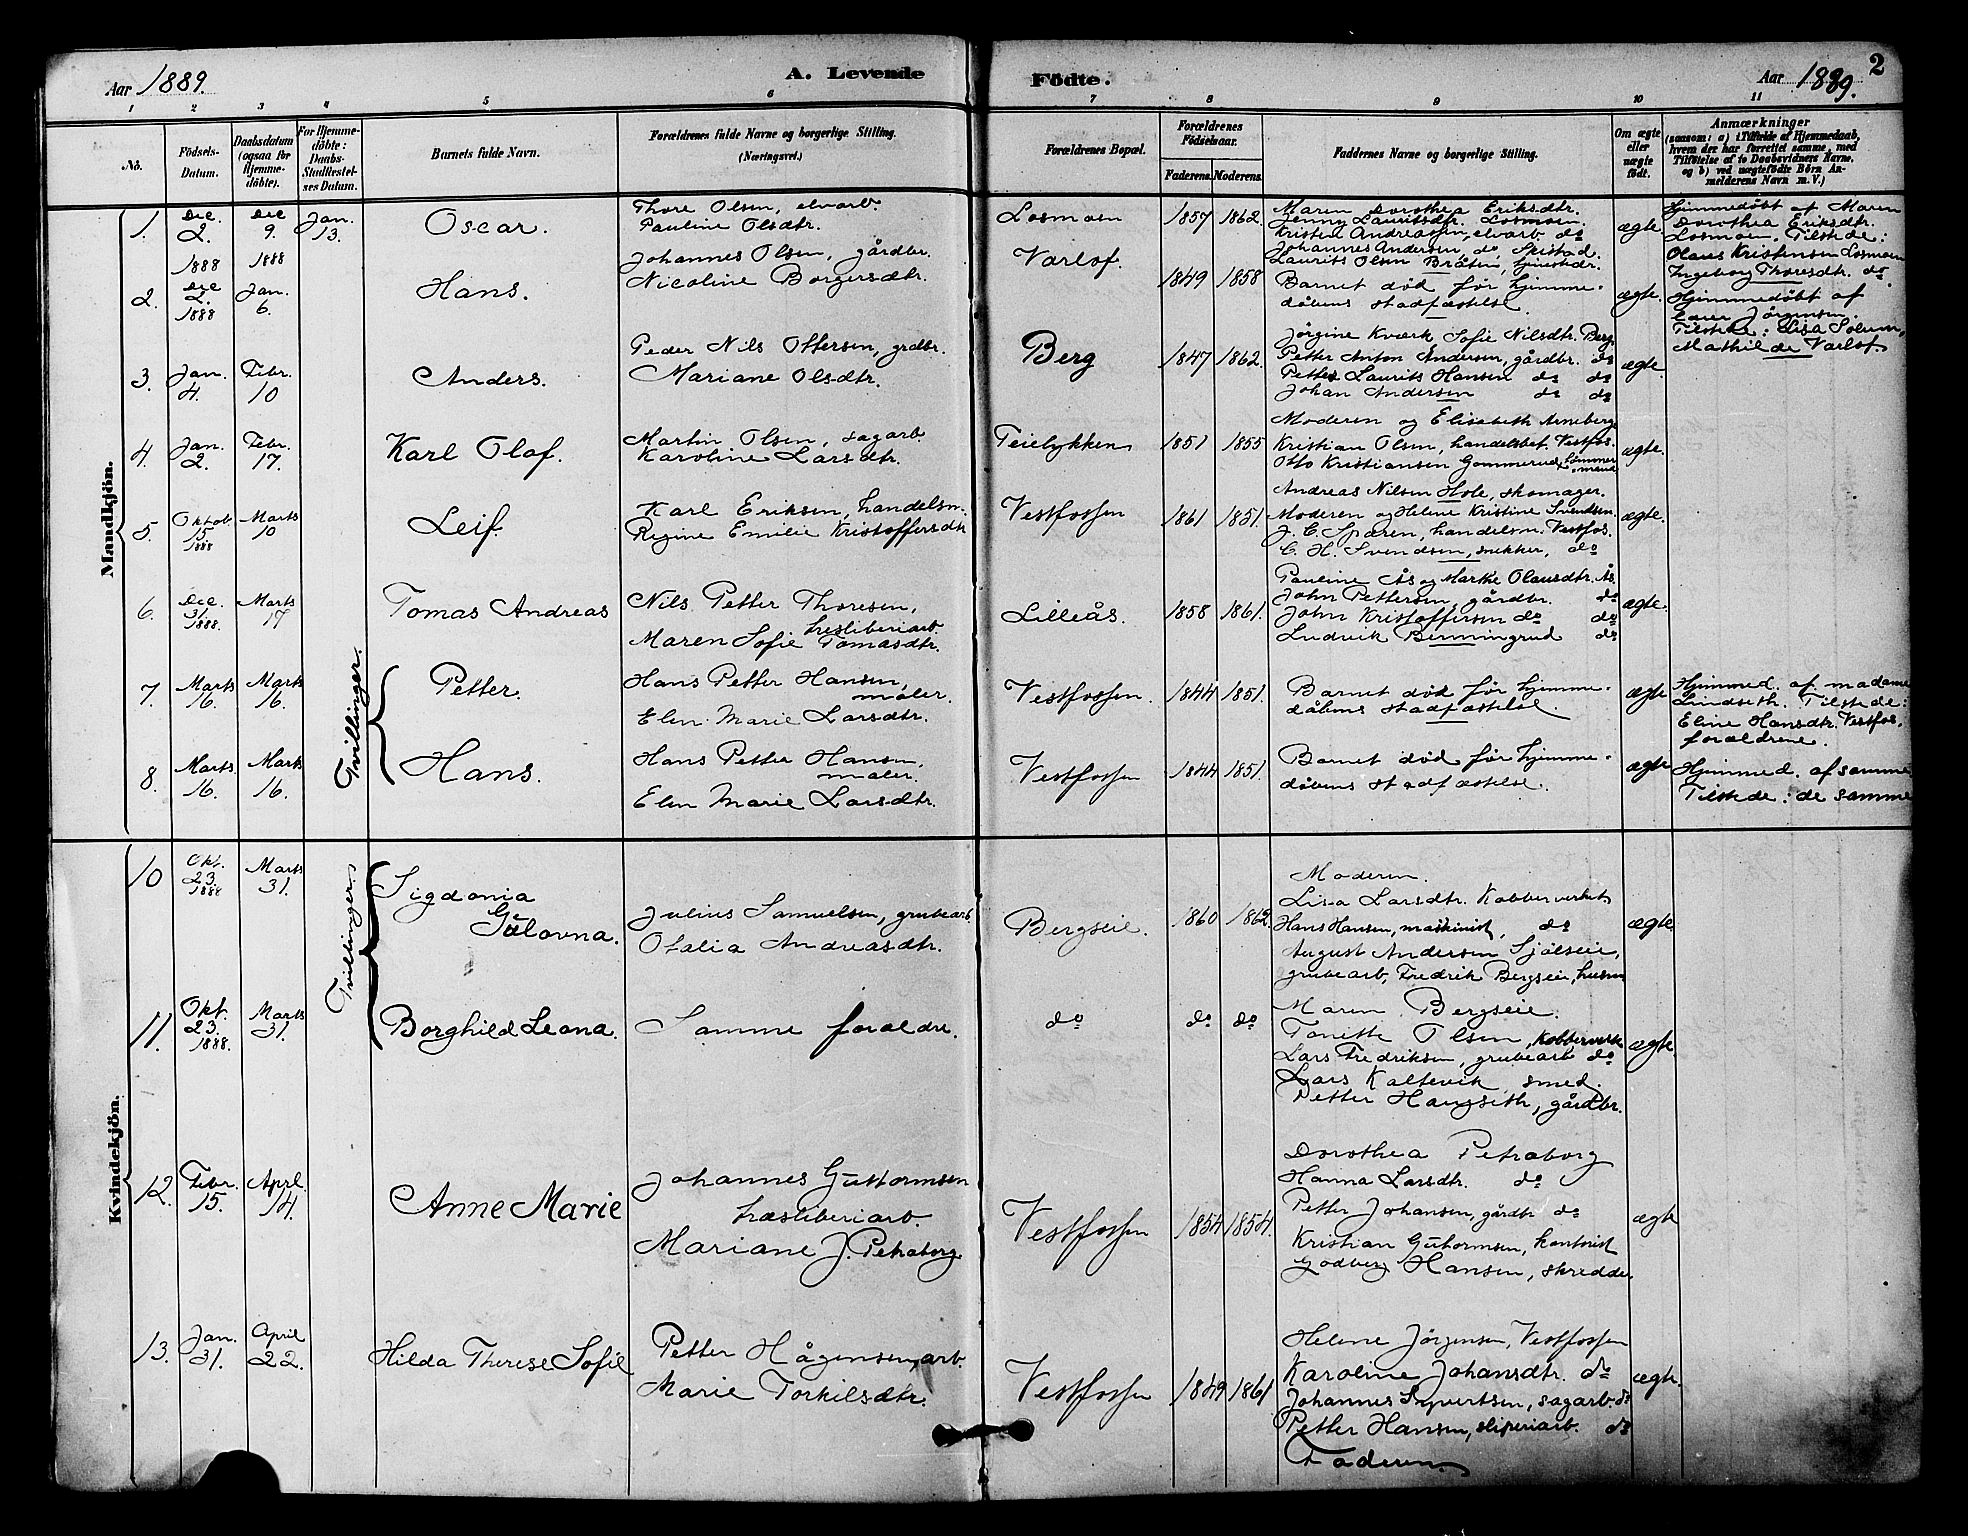 Aar 1889.
A. Levende Födte.
Aar 1889.
2
1 2 3 4 5 6 7 8 9 10 11
No.
Födsels-Datum.
Daabsdatum (ogsaa for Hjemmedöbte).
For Hjemmedöbte: Daabs-Stadfæstelses Datum.
Barnets fulde Navn.
Forældrenes fulde Navne og borgerlige Stilling. (Næringsvei.)
Forældrenes Bopæl.
Forældrenes Födselsaar.
Faderens. Moderens.
Faddernes Navne og borgerlige Stilling.
Om ægte eller uægte födt.
Anmærkninger
(saasom: a) i Tilfælde af Hjemmedaab, hvem der har forrettet samme, med Tilföielse af to Daabsvidners Navne, og b) ved uægtefödte Börn Anmelderens Navn m. V.)
Mandkjön.
1. Dec. 2. 1888
Dec 9. 1888
Jan. 13.
Oscar.
Thore Olsen, elvarb.
Pauline Olsdtr.
Losmoen
1857 1862.
Maren Dorothea Eriksdtr.
Jenny Lauritsdtr. Losmoen.
Kristen Andreassen, elvarb do
Johannes Andersen, do, Spistad.
Laurits Olsen Bråten, tjenestedr.
ægte.
Hjemmedøbt af Maren
Dorothea Eriksdtr.
Losmoen. Tilstede:
Olaus Kristensen Losmoen
Ingeborg Thoresdtr. do.
2. Dec 2. 1888
Jan. 6.
Hans.
Johannes Olsen, gårdbr.
Nicoline Borgersdtr.
Varlof.
1849 1858
Barnet død før hjemme-
dåbens stadfæstelse.
ægte.
Hjemmedøbt af
Jørgensen.
Tilstede: Lisa Solum,
Mathilde Varlof.
3. Jan. 4.
Febr. 10
Anders.
Peder Nils Ottersen, grdbr.
Mariane Olsdtr.
Berg
1847 1862.
Jørgine Kværk Sofie Nilsdtr. Berg.
Petter Anton Andersen, gårdbr. do
Petter Laurits Hansen do do
Johan Andersen do do
ægte.
4. Jan. 2.
Febr. 17.
Karl Olaf.
Martin Olsen, sagarb
Karoline Larsdtr.
Teielykken
1851 1855
Moderen og Elisabeth Arneberg
Kristian Olsen, handelsbet. Vestfos.
Otto Kristiansen Gommerud,
Andreas Nilsen Hole, skomager.
ægte.
5. Oktob. 15 1888
Marts 10
Leif.
Karl Eriksen, handelsm.
Regine Emilie Kristoffersdtr
Vestfossen
1861 1851.
Moderen og Helene Kristine Svendsen.
J. C. Sparen, handelsm. Vestfos.
C. H. Svendsen, snekker, do
ægte.
6. Dec. 31. 1888.
Marts 17
Tomas Andreas
Nils Petter Thoresen,
træsliberiarb.
Maren Sofie Tomasdtr.
Lilleås.
1858 1861.
Pauline Ås og Marthe Olausdtr. Ås.
John Pettersen, gårdbr. do
John Kristoffersen do do
Ludvik Bermingrud do
ægte.
Tvillinger.
7. Marts 16.
Marts 16.
Petter.
Hans Petter Hansen,
maler.
Elen Marie Larsdtr.
Vestfossen
1844 1851.
Barnet død før hjemme-
dåbens stadfæstelse.
ægte
Hjemmed. af madame
Lindseth. Tilstede:
Eline Hansdtr. Vestfos,
forældrene.
8. Marts. 16.
Marts 16.
Hans.
Hans Petter Hansen,
maler.
Elen Marie Larsdtr.
Vestfossen
1844 1851.
Barnet død før hjemme-
dåbens stadfæstelse.
ægte
Hjemmed. af samme
Tilstede: de samme
Kvindekjön.
Tvillinger.
10 Okt. 23. 1888
Marts 31.
Sigdonia
Gulovna.
Julius Samuelsen, grubearb.
Otalia Andreasdtr.
Bergseie.
1860 1862
Moderen.
Lisa Larsdtr. Kobberverket
Hans Hansen, maskinist, do
August Andersen Sjølseie,
grubearb, Fredrik Bergseie, husm
ægte.
11. Okt. 23. 1888.
Marts 31.
Borghild Leona.
Samme forældre.
do
do do
Maren Bergseie.
Tonette Olsen, Kobberverk
Lars Fredriksen, grubearb do
Lars Kaltevik, smed.
Petter Haugseth, gårdbr.
ægte.
12. Febr. 15.
April. 14.
Anne Marie
Johannes Guttormsen
træsliberiarb.
Mariane J. Petraborg
Vestfossen
1854 1854.
Dorothea Petraborg
Hanna Larsdtr. do
Petter Johansen, gårdbr do
Kristian Gutormsen, kontorist
Godberg Hansen, skredder
ægte
13. Jan. 31.
April 22.
Hilda Therese Sofie
Petter Hågensen, arb.
Marie Torkilsdtr.
Vestfossen
1849 1861
Helene Jørgensen, Vestfossen
Karoline Johansdtr. do
Johannes Syvertsen, sagarb. do
Petter Hansen, sliperiarb. do
Faderen.
ægte.